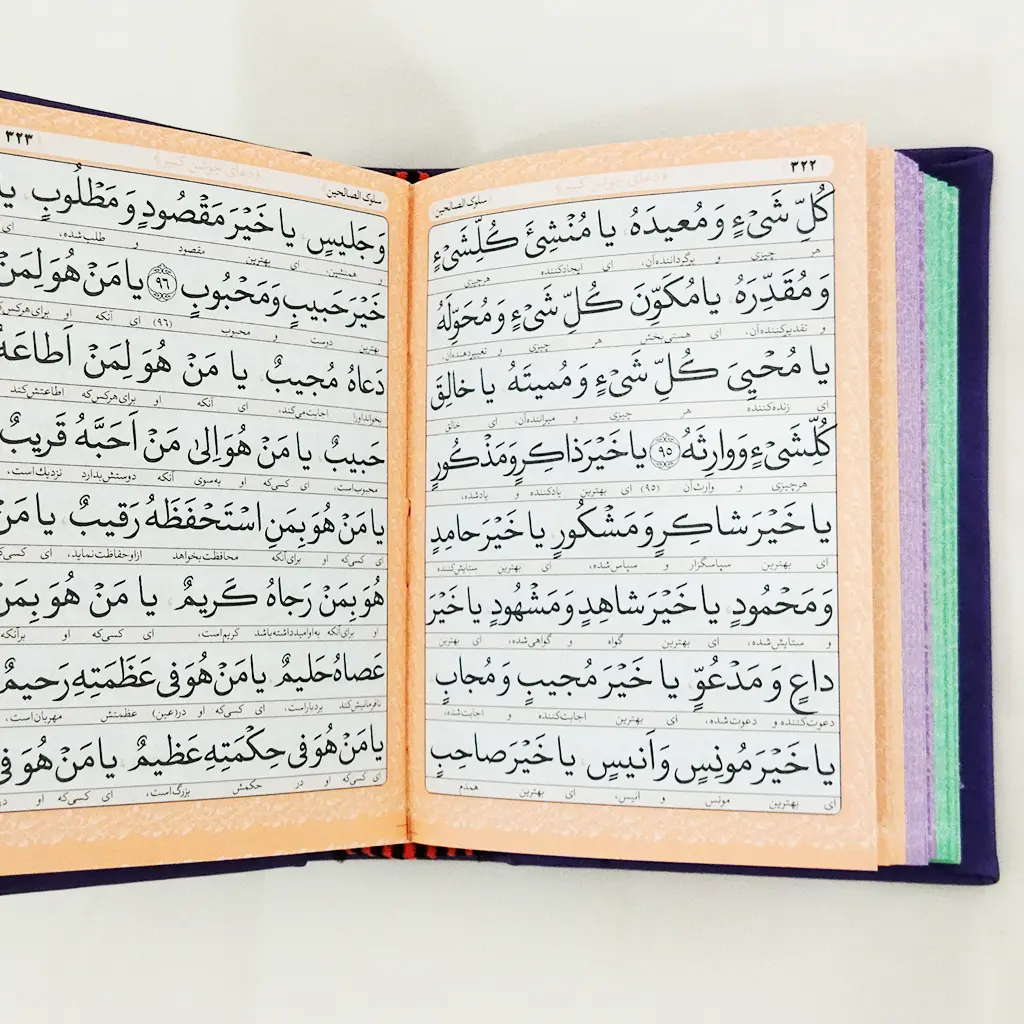 ۳۲۲
﴿دعای جوشن کبیر﴾
سلوک الصالحین
كُلِّ شَیْءٍ وَ مُعیدَهُ یا مُنْشِئَ كُلِّشَیْءٍ
هر چیزی و برگرداننده‌آن، ای ایجادکننده هرچیزی
وَ مُقَدِّرَهُ یا مُكَوِّنَ كُلِّ شَیْءٍ وَ مُحَوِّلَهُ
و تقدیرکننده‌آن، ای هستی‌بخش هر چیزی و تغییردهنده‌آن،
یا مُحْیِیَ كُلِّ شَیْءٍ وَ مُمیتَهُ یا خالِقَ
ای زنده‌کننده هر چیزی و میراننده‌آن، ای خالق
كُلِّشَیْءٍ وَ وارِثَهُ ۹۵ یا خَیْرَ ذاكِرٍ وَ مَذْكُورٍ
هرچیزی و وارث‌آن (۹۵) ای بهترین یادکننده و یادشده،
یا خَیْرَ شاكِرٍ وَ مَشْكُورٍ یا خَیْرَ حامِدٍ
ای بهترین سپاسگزار و سپاس‌شده، ای بهترین ستایش‌کننده
وَ مَحْمُودٍ یا خَیْرَ شاهِدٍ وَ مَشْهُودٍ یا خَیْرَ
و ستایش‌شده، ای بهترین گواه و گواهی‌شده، ای بهترین
داعٍ وَ مَدْعُوٍّ یا خَیْرَ مُجیبٍ وَ مُجابٍ
دعوت‌کننده و دعوت‌شده، ای بهترین اجابت‌کننده و اجابت‌شده،
یا خَیْرَ مُونِسٍ وَ اَنیسٍ یا خَیْرَ صاحِبٍ
ای بهترین مونس و انیس، ای بهترین همدم
۳۲۳
﴿دعای جوشن کبیر﴾
سلوک الصالحین
وَ جَلیسٍ یا خَیْرَ مَقْصُودٍ وَ مَطْلُوبٍ یا
و همنشین، ای بهترین مقصود و طلب‌شده، ای
خَیْرَ حَبیبٍ وَ مَحْبُوبٍ ۹۶ یا مَنْ هُوَ لِمَنْ
بهترین دوست و محبوب (۹۶) ای آنکه او برای‌هرکس‌که
دَعاهُ مُجیبٌ یا مَنْ هُوَ لِمَنْ اَطاعَهُ
بخوانداورا اجابت‌می‌کند، ای آنکه او برای‌هرکس‌که اطاعتش‌کند
حَبیبٌ یا مَنْ هُوَ اِلیٰ مَنْ اَحَبَّهُ قَریبٌ
محبوب‌است، ای کسی‌که او به‌سوی آنکه دوستش‌بدارد نزدیك‌است،
یا مَنْ هُوَ بِمَنِ اسْتَحْفَظَهُ رَقیبٌ یا مَنْ
ای کسی‌که او برای‌آنکه محافظت‌بخواهد ازاوحفاظت‌نماید، ای کسی‌که
هُوَ بِمَنْ رَجاهُ كَریمٌ یا مَنْ هُوَ بِمَنْ
او برای‌آنکه به‌اوامیدداشته‌باشد کریم‌است، ای کسی‌که او برآنکه
عَصاهُ حَلیمٌ یا مَنْ هُوَ فی عَظَمَتِهِ رَحیمٌ
نافرمانیش‌کند بردباراست، ای کسی‌که او در(عین) عظمتش مهربان‌است،
یا مَنْ هُوَ فی حِكْمَتِهِ عَظیمٌ یا مَنْ هُوَ فی
ای کسی‌که او در حکمتش بزرگ‌است، ای کسی‌که او در